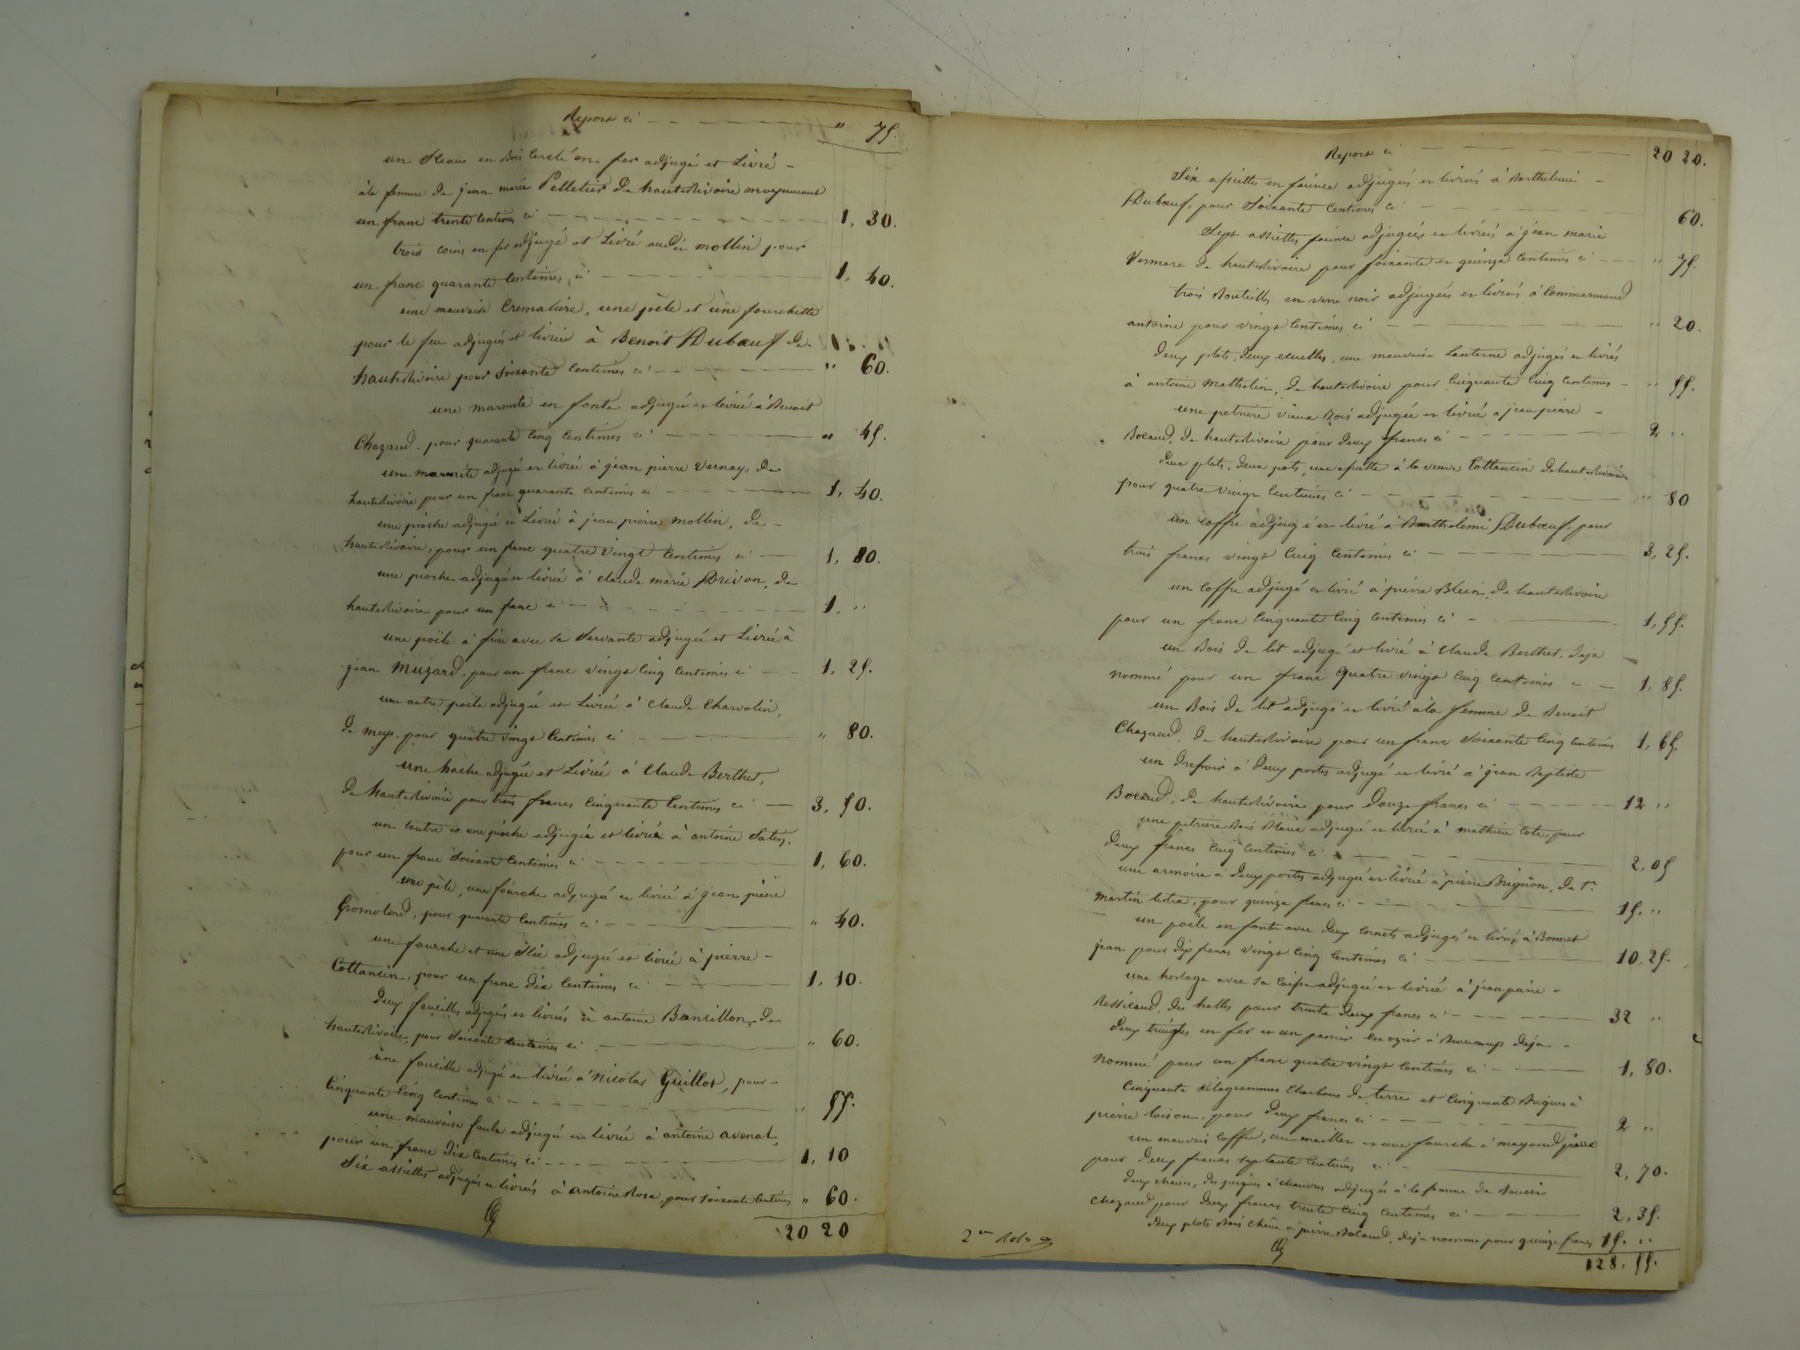 Report ci " 75.
un Seau en Bois Cerclé en fer adjugé et Livré
à la femme de jean marie Pelletier de hauterivoire moyennant
un franc trente Centimes ci 1, 30.
trois coins en fer adjugé et Livré audit mollin pour
un franc quarante Centimes, ci 1, 40.
une mauvaise Cremaliere, une pèle et une fourchette
pour le feu adjugés et livrés à Benoit Dubœuf de
hauterivoire pour Soixante Centimes ci " 60.
une marmite en fonte adjugée et livrée à Benoit
Chazaud, pour quarante Cinq Centimes ci " 45.
une marmite adjugé et livrée à jean pierre Vernay, de
hauterivoire pour un franc quarante Centimes ci 1, 40.
une pioche adjugée et Livrée à jean pierre mollin, de
hauterivoire, pour un franc quatre Vingt Centimes ci 1, 80.
une pioche adjugée et livrée à Claude marie Drivon, de
hauterivoire pour un franc ci 1, "
une poële à frire avec sa Servante adjugée et Livrée à
jean Muzard, pour un franc vingt Cinq Centimes ci 1, 25.
une autre poële adjugée et Livrée à Claude Charvolin,
de meys, pour quatre vingt Centimes ci " 80.
une hache adjugée et Livrée à Claude Berthet,
de hauterivoire pour trois francs Cinquante Centimes ci 3, 50.
un Coutre et une pioche adjugée et livrée à antoine
pour un franc Soixante Centimes ci 1, 60.
une pèle, une fourche adjugée et livrée à jean pierre
pour quarante Centimes ci " 40.
une fourche et une Scie adjugée et livrée à pierre
Cottancin, pour un franc Dix Centimes ci 1, 10.
deux faucilles adjugées et livrées à antoine Bancillon, de
hauterivoire, pour Soixante Centimes ci " 60.
une faucille adjugée et livrée à Nicolas Guillot, pour
Cinquante Cinq Centimes ci " 55.
une mauvaise faulx adjugée et livrée à antoine avenat,
pour un franc Dix Centimes ci 1, 10
Six assiettes adjugées et livrées à antoine Rose, pour soixante Centimes " 60.
20 20
Report ci 20 20.
Six assiettes en faïence adjugées et livrées à Barthelemi
Dubœuf, pour Soixante Centimes ci 60.
Sept assiettes faïence adjugées et livrées à jean marie
Vermare de hauterivoire pour soixante et quinze Centimes ci " 75.
trois Bouteilles en verre noir adjugées et livrées à Commarmond
antoine pour vingt Centimes ci " 20.
deux plats, deux ecuelles, une mauvaise Lanterne adjugés et livrés
à antoine Mathelin, de hauterivoire pour Cinquante Cinq Centimes " 55.
une petriere vieux Bois adjugée et livrée à jean pierre
de hauterivoire pour deux francs ci 2 "
deux plats, deux pots, une assiette à la veuve Cottancin de hauterivoire
pour quatre vingt Centimes ci " 80
un coffre adjugé et livré à Barthelemi Dubœuf, pour
trois francs vingt Cinq Centimes ci 3, 25.
un Coffre adjugé et livré à pierre Blein de hauterivoire
pour un franc Cinquante Cinq Centimes ci 1, 55.
un Bois de lit adjugé et livré à Claude Berthet, deja
nommé pour un franc Quatre vingt Cinq Centimes ci 1, 85.
un Bois de lit adjugé et livré à la femme de Benoit
Chazaud, de hauterivoire pour un franc Soixante Cinq Centimes 1, 65.
un dressoir à deux portes adjugé et livré à jean Baptiste
de hauterivoire pour Douze francs ci 12 "
une petriere Bois adjugée et livrée à mathieu Cote, pour
deux francs Cinq Centimes ci 2, 05
une armoire à deux portes adjugée et livrée à pierre Brignon, de St
martin lestra, pour quinze francs ci 15. "
un poële en fonte avec deux Cornets adjugés et livrés à Bonnet
jean pour dix francs vingt Cinq Centimes ci 10, 25.
une horloge avec sa Caisse adjugée et livrée à jean pierre
des halles pour trente deux francs ci 32 "
deux tringles en fer et un panier en ozier à deja
nommé pour un franc quatre vingt Centimes ci 1, 80.
Cinquante Kilogrammes Charbons de terre et Cinquante Briques à
pierre loison, pour deux francs ci 2 "
un mauvais Coffre, un et une fourche à
pour deux francs septante Centimes ci 2, 70.
deux chaises, des peignes à chanvre adjugés à la femme de Benoit
Chazaud pour deux francs trente Cinq Centimes ci 2, 35.
deux plots Bois Chêne à pierre deja nommé pour quinze francs 15. "
128, 55.
2me Rôle